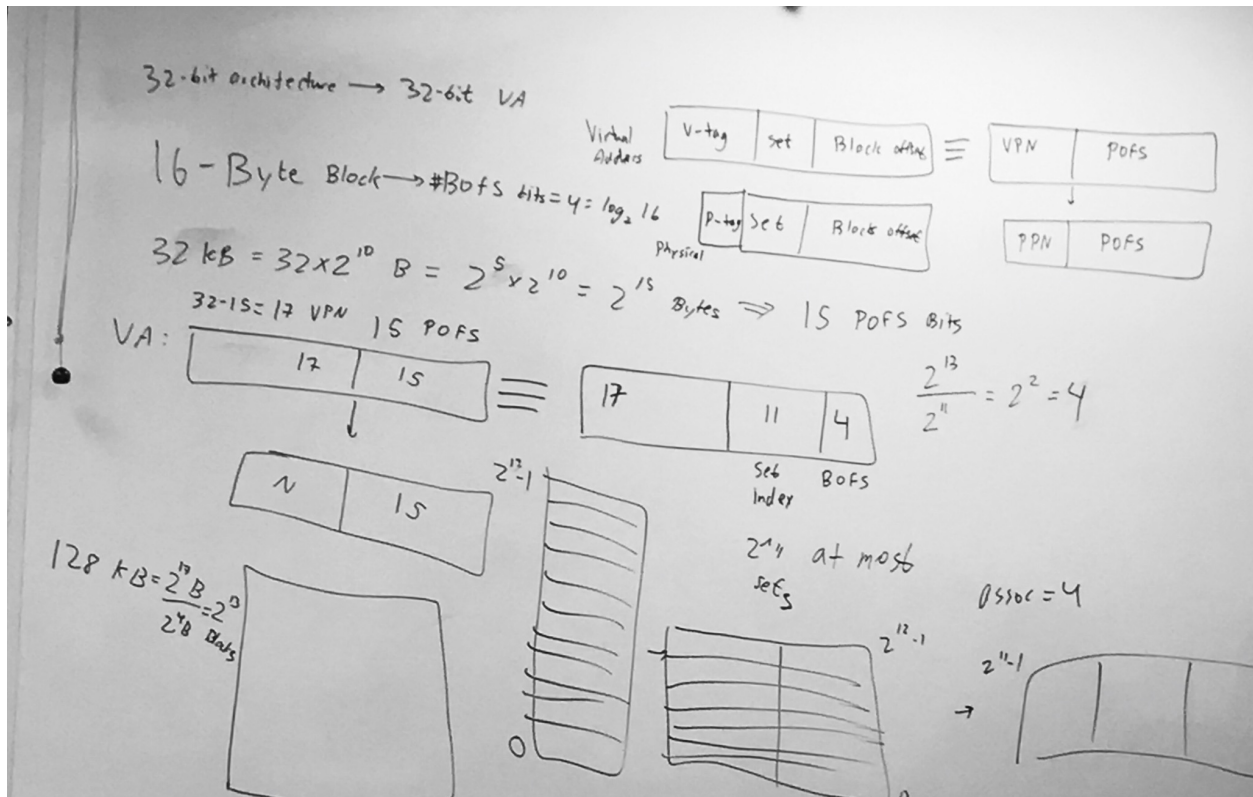 32-bit architecture → 32-bit VA
Virtual Adders
V-tag set Block offset ≡ VPN POFS
16-Byte Block → #BOFS bits = 4 = log₂ 16
Physical
P-tag set Block offset
PPN POFS
32 kB = 32x2¹⁰ B = 2⁵x2¹⁰ = 2¹⁵ Bytes ⇒ 15 POFS Bits
32-15=17 VPN 15 POFS
VA: 17 15 ≡ 17 11 4
2¹³/2¹¹ = 2² = 4
Set Index BOFS
N 15
2¹¹ at most
sets
128 kB = 2¹⁷B/2⁴B = 2¹³ Blocks
0
assoc = 4
2¹²-1
2¹¹-1
→